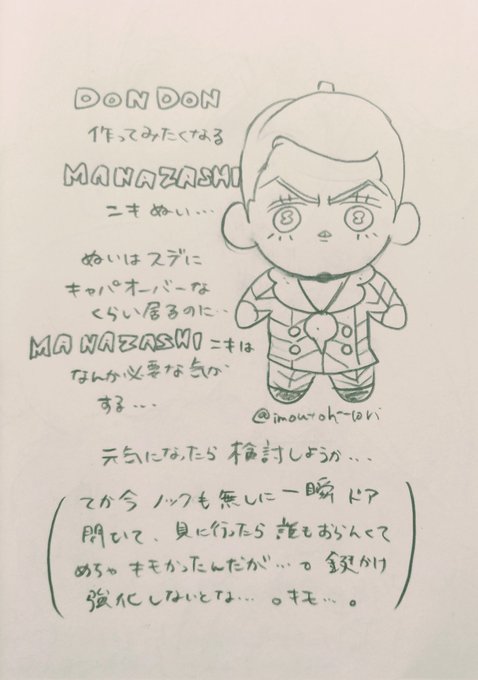 DON DON
作ってみたくなる
MANAZASHI
ニキ ぬい…
ぬいは スデに
キャパオーバーな
くらい居るのに…
MANAZASHI ニキは
なんか必要な気が
する…
元気になったら 検討しようか…
(てか今 ノックも無しに 一瞬 ドア
開いて、見に行ったら 誰もおらんくて
めちゃ キモかったんだが…。鍵かけ
強化しないとな…。キモ…。)